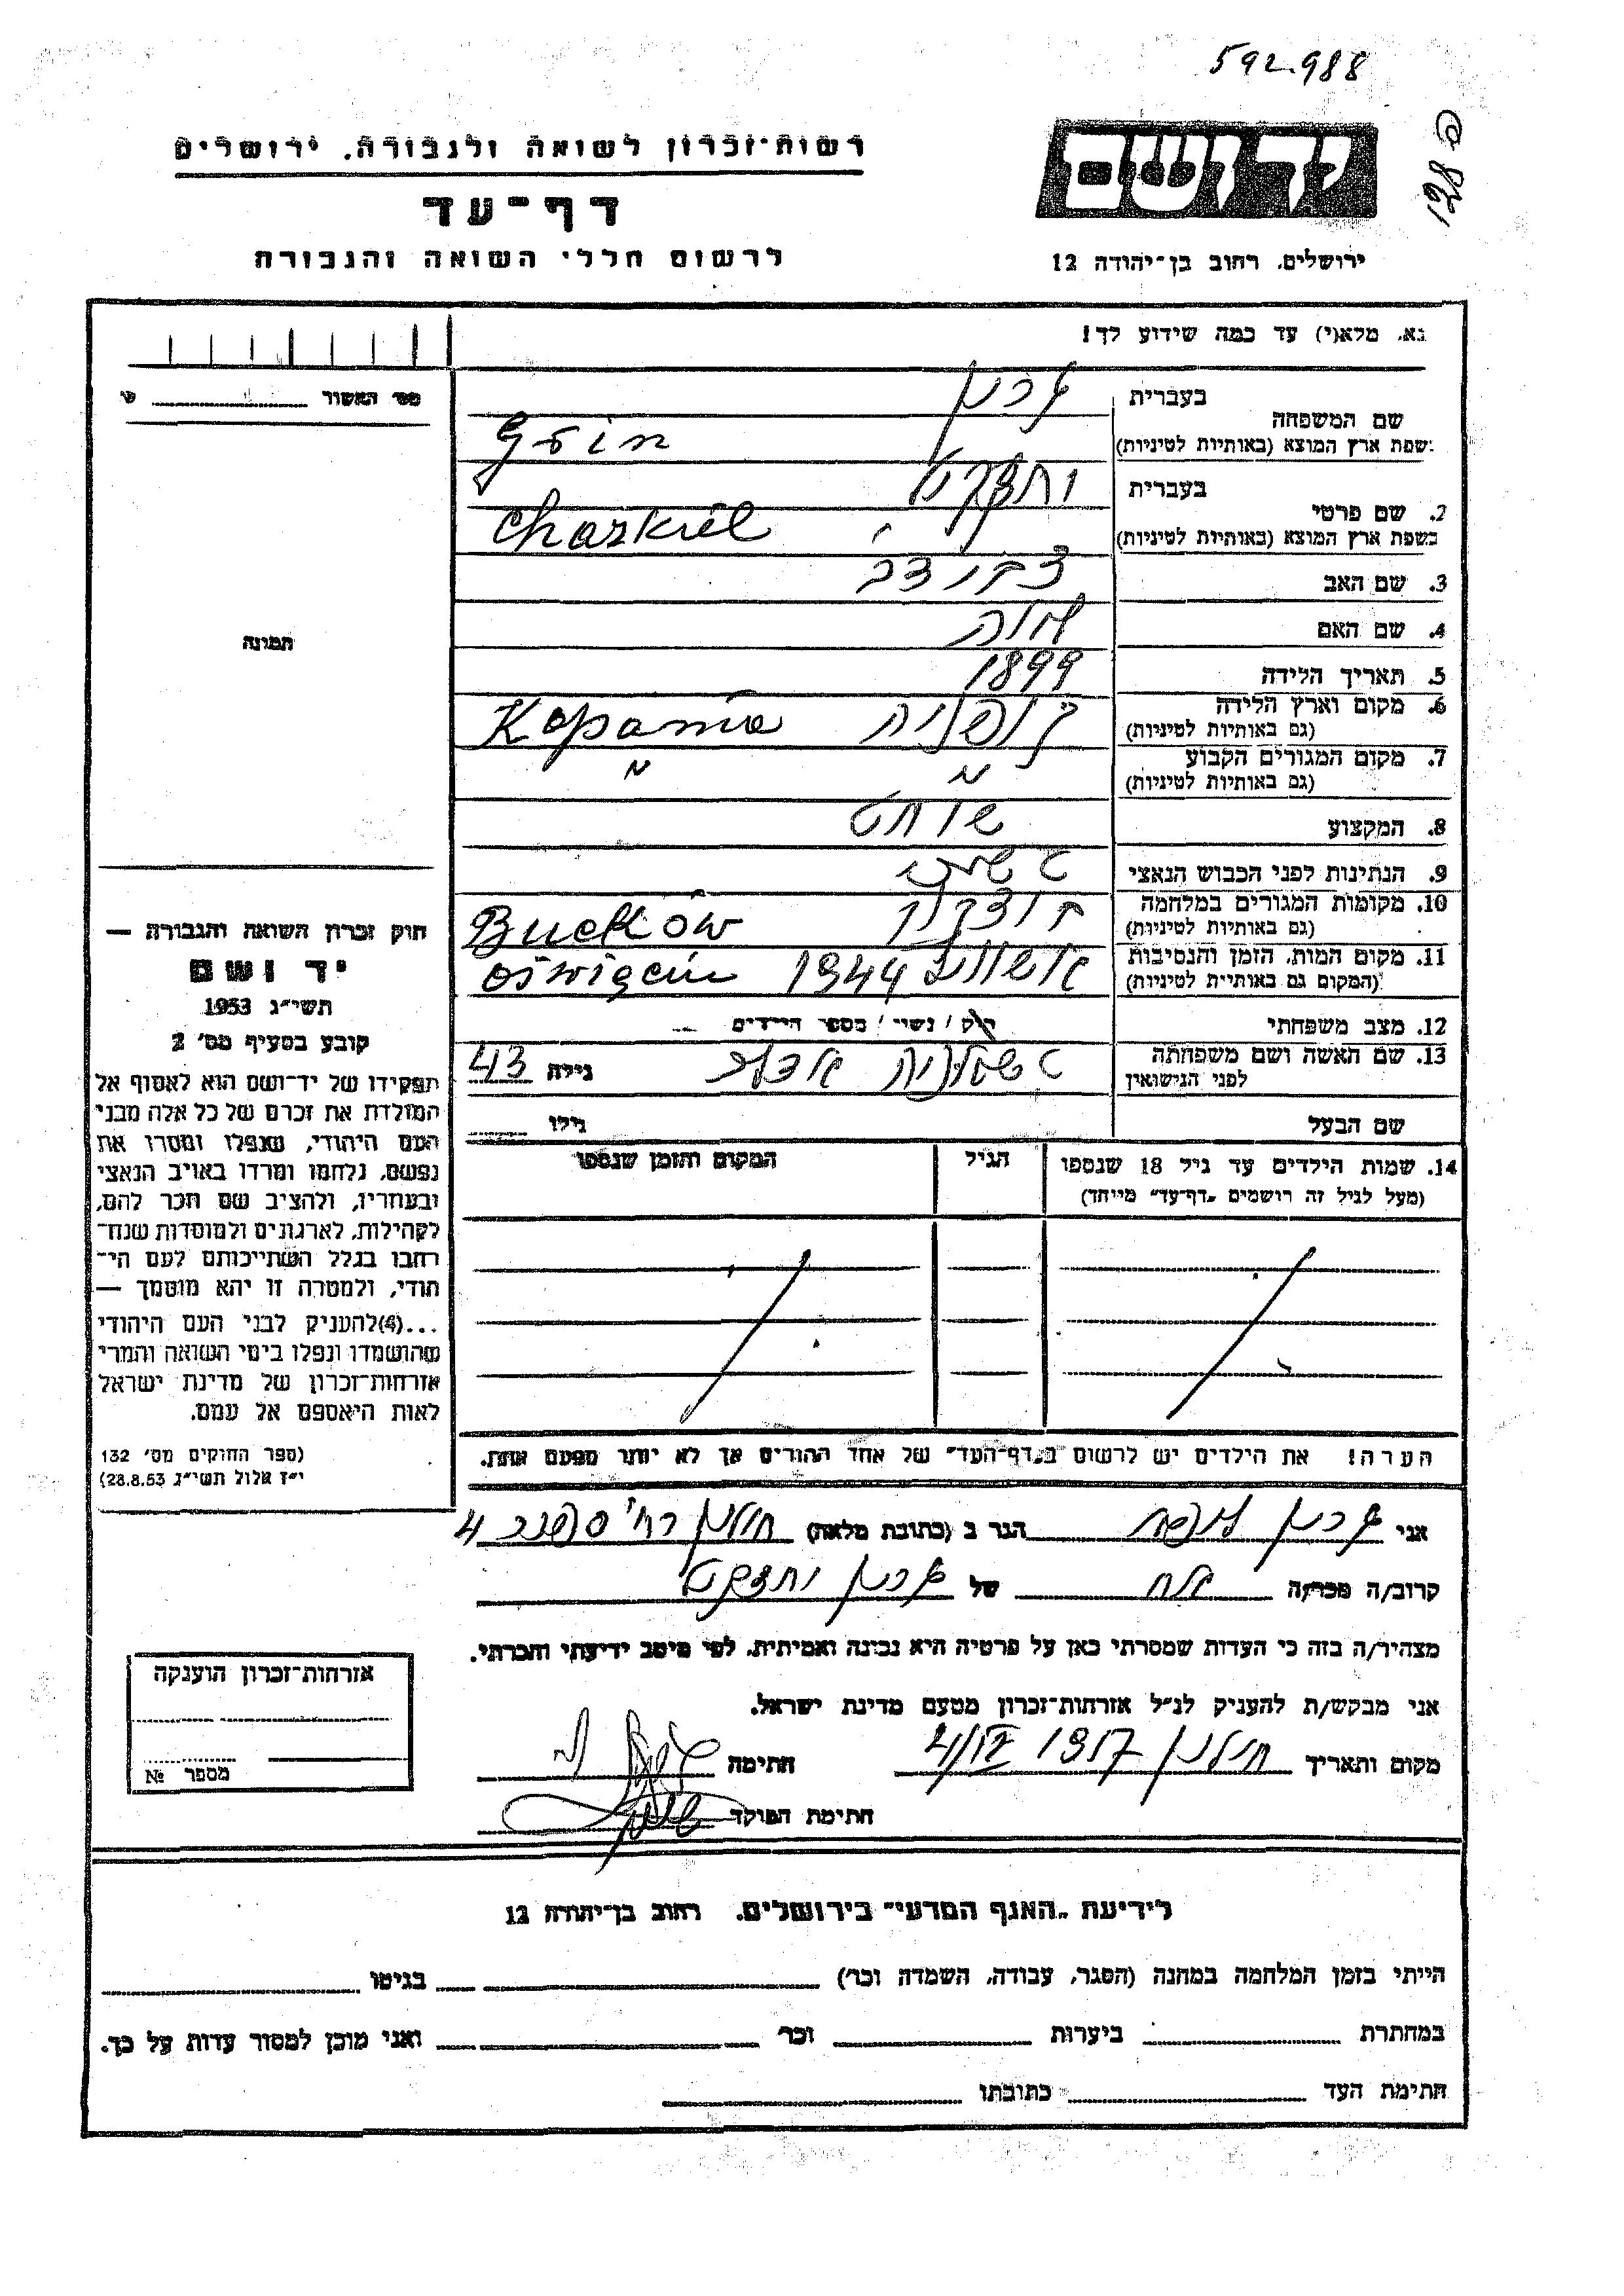 592.988
רשות־זכרון לשואה ולגבורה. ירושלים
יד ושם
דף־עד
לרשום חללי השואה והגבורה
ירושלים. רחוב בן־יהודה 12
נא. מלא(י) עד כמה שידוע לך!
מס׳ האשור
שם המשפחה
בעברית
גרין
בשפת ארץ המוצא (באותיות לטיניות)
Grin
2. שם פרטי
בעברית
יחזקאל
בשפת ארץ המוצא (באותיות לטיניות)
Chazkiel
3. שם האב
4. שם האם
5. תאריך הלידה
1899
6. מקום וארץ הלידה
(גם באותיות לטיניות)
קופניה Kopania
7. מקום המגורים הקבוע
(גם באותיות לטיניות)
״ ״
8. המקצוע
שוחט
9. הנתינות לפני הכבוש הנאצי
10. מקומות המגורים במלחמה
(גם באותיות לטיניות)
11. מקום המות. הזמן והנסיבות
(המקום גם באותיות לטיניות)
1944 Oświęcim
12. מצב משפחתי
רוק / נשוי / מספר הילדים
13. שם האשה ושם משפחתה
לפני הנישואין
גילה 43
שם הבעל
גילו
14. שמות הילדים עד גיל 18 שנספו
(מעל לגיל זה רושמים „דף־עד״ מייחד)
הגיל
המקום והזמן שנספו
הערה! את הילדים יש לרשום ב„דף־העד״ של אחד ההורים אך לא יותר מפעם אחת.
תמונה
חוק זכרון השואה והגבורה —
יד ושם
תשי״ג 1953
קובע בסעיף מס׳ 2
תפקידו של יד־ושם הוא לאסוף אל
המולדת את זכרם של כל אלה מבני
העם היהודי, שנפלו ומסרו את
נפשם, נלחמו ומרדו באויב הנאצי
ובעוזריו, ולהציב שם וזכר להם,
לקהילות, לארגונים ולמוסדות שנח־
רבו בגלל השתייכותם לעם הי־
הודי, ולמטרה זו יהא מוסמך —
...(4)להעניק לבני העם היהודי
שהושמדו ונפלו בימי השואה והמרי
אזרחות־זכרון של מדינת ישראל
לאות היאספם אל עמם.
(ספר החוקים מס׳ 132
י״ז אלול תשי״ג 28.8.53)
אני גרין הגר ב (כתובת מלאה) חולון רח׳ 4
קרוב/ה מכר/ה אח של גרין יחזקאל
מצהיר/ה בזה כי העדות שמסרתי כאן על פרטיה היא נכונה ואמיתית. לפי מיטב ידיעתי והכרתי.
אני מבקש/ת להעניק לנ״ל אזרחות־זכרון מטעם מדינת ישראל.
מקום ותאריך חולון 1957 חתימה
חתימת הפוקד
אזרחות־זכרון הוענקה
מספר №
לידיעת „האגף המדעי״ בירושלים. רחוב בן־יהודה 12
הייתי בזמן המלחמה במחנה (הסגר, עבודה, השמדה וכו׳) בגיטו
במחתרת ביערות וכו׳ ואני מוכן למסור עדות על כך.
חתימת העד כתובתו